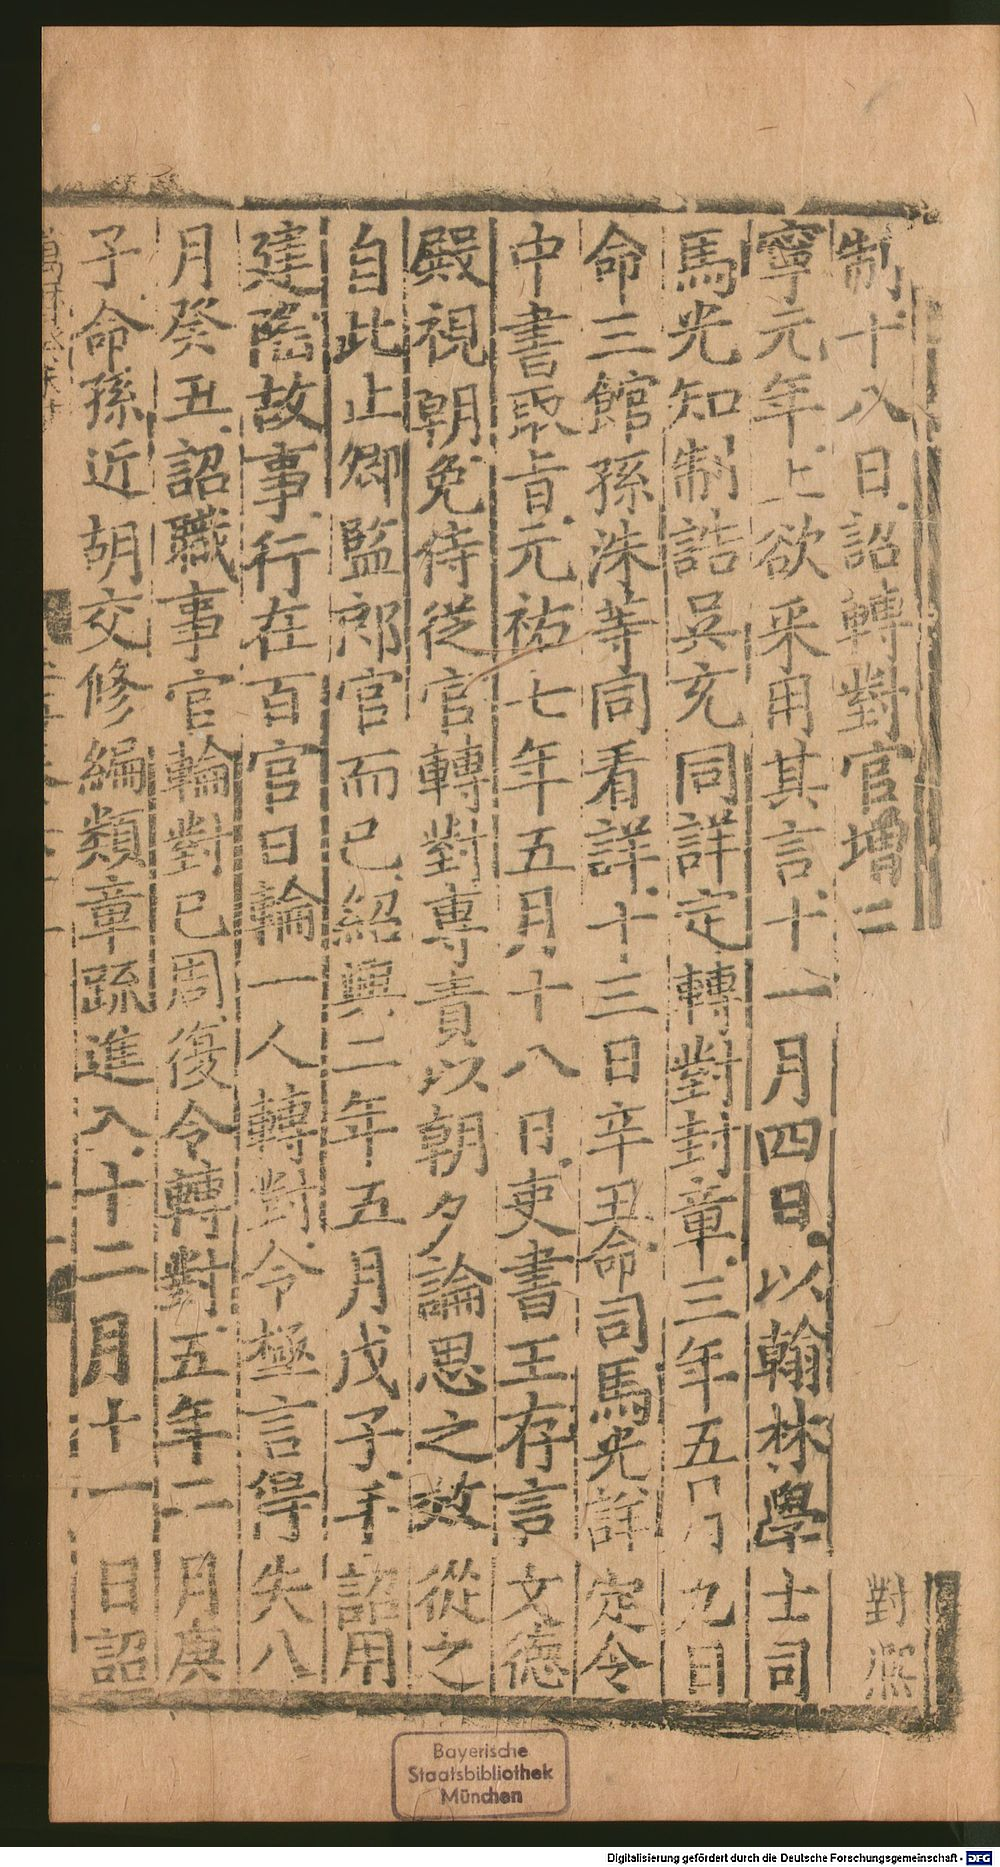 制十八日詔轉對官增二 對熙
寧元年上欲采用其言十一月四日以翰林學士司
馬光知制誥吳充同詳定轉對封章三年五月九日
命三館孫洙等同看詳十三日辛丑命司馬光詳定令
中書取旨元祐七年五月十八日吏書王存言文德
殿視朝免侍從官轉對專責以朝夕論思之效從之
自此止卿監郎官而已紹興二年五月戊子手詔用
建隆故事行在百官日輪一人轉對令極言得失八
月癸丑詔職事官輪對已周復令轉對五年二月庚
子命孫近胡交修編類章疏進入十二月十一日詔
Bayerische
Staatsbibliothek
München
Digitalisierung gefördert durch die Deutsche Forschungsgemeinschaft - DFG